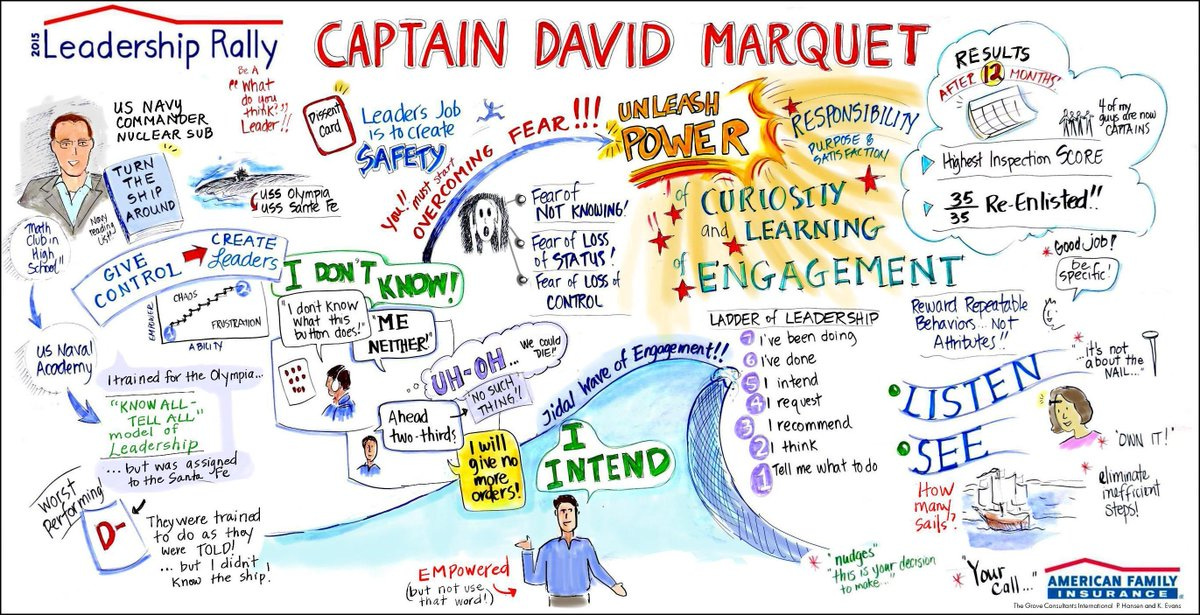 2015
Leadership Rally
CAPTAIN DAVID MARQUET
US NAVY
COMMANDER
NUCLEAR SUB
TURN
THE
SHIP
AROUND
Navy
reading
LIST!!
Be A
"What
do you
think?"
Leader!!
USS Olympia
USS Sante Fe
Dissent
Card
Leaders Job
is to create
SAFETY
You!! must start
OVERCOMING FEAR!!!
Fear of
NOT KNOWING!
Fear of LOSS
of STATUS!
Fear of LOSS of
CONTROL
UNLEASH
POWER
RESPONSIBILITY
PURPOSE &
SATISFACTION!
of CURIOSITY
and LEARNING
!!
of ENGAGEMENT
RESULTS
AFTER 12 MONTHS'
4 of my
guys are now
CAPTAINS
Highest Inspection SCORE
35/35 Re-Enlisted!!
"Math
Club in
High
School"
US Naval
Academy
GIVE
CONTROL
CREATE
Leaders
EMPOWER
CHAOS
FRUSTRATION
1
2
ABILITY
I trained for the Olympia...
"KNOW ALL-
TELL ALL"
model of
Leadership
...but was assigned
to the Santa Fe
Worst
Performing!
D-
They were trained
to do as they
were TOLD!
...but I didn't
Know the ship!
I DON'T
KNOW!
"I don't know
what this
button does!"
"ME
NEITHER!"
UH-OH...
we could
DIE!!
Ahead
two-thirds
"NO SUCH
THING"!
I will
give no
more
orders!
Tidal Wave of Engagement!!
I
INTEND
EMPOWERED
(but not use
that word!)
LADDER of LEADERSHIP
7 I've been doing
6 I've done
5 I intend
4 I request
3 I recommend
2 I think
1 Tell me what to do
Good job!
be
specific!
Reward Repeatable
Behaviors...Not
Attributes!!
LISTEN
SEE
...it's not
about the
NAIL..."
"OWN IT!"
How
many
sails?
eliminate
inefficient
steps!
"nudges"
"this is your decision
to make..."
"Your
Call..."
AMERICAN FAMILY
INSURANCE
The Grove Consultants International P. Hansen and K. Evans